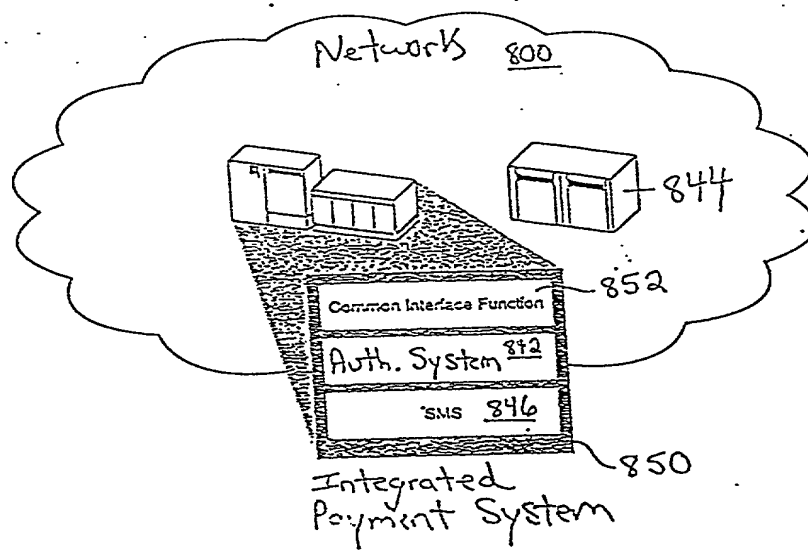 Network 800
844
852
Common Interface Function
Auth. System 842
SMS 846
850
Integrated
Payment System